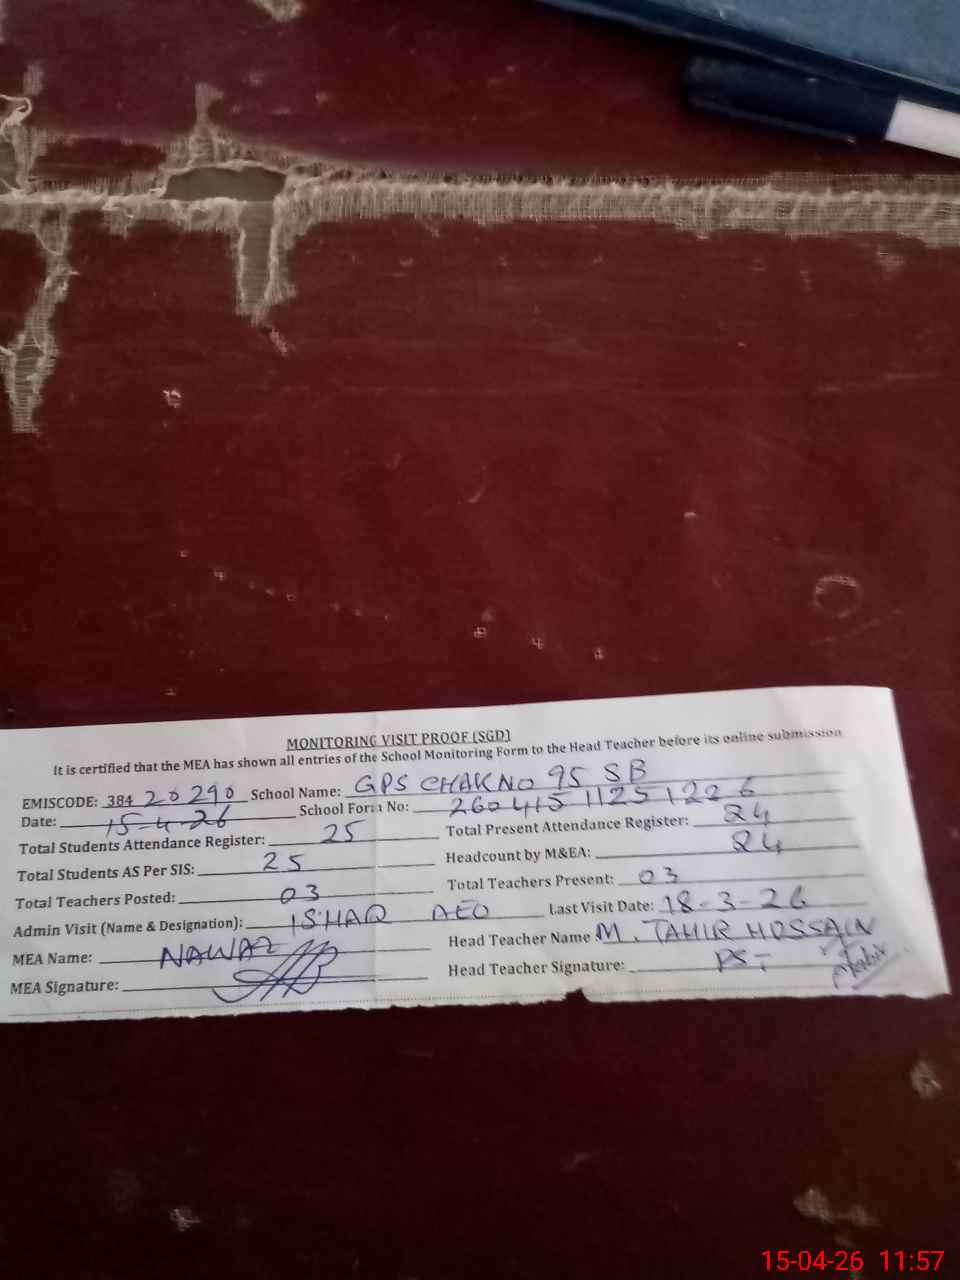 MONITORING VISIT PROOF (SGD)
It is certified that the MEA has shown all entries of the School Monitoring Form to the Head Teacher before its online submission
EMISCODE: 384 20290 School Name: GPS CHAK NO 95 SB
Date: 15-4-26 School Form No: 260415 1125 1226
Total Students Attendance Register: 25 Total Present Attendance Register: 24
Total Students AS Per SIS: 25 Headcount by M&EA: 24
Total Teachers Posted: 03 Total Teachers Present: 03
Admin Visit (Name & Designation): ISHAQ AEO Last Visit Date: 18-3-26
MEA Name: NAWAZ Head Teacher Name M. TAHIR HUSSAIN
MEA Signature: Head Teacher Signature: PST
15-04-26 11:57